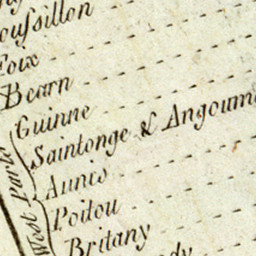 oussillon
Foix
Bearn
Guinne
Saintonge & Angoum
Aunis
Poitou
Britany
dy
West Part